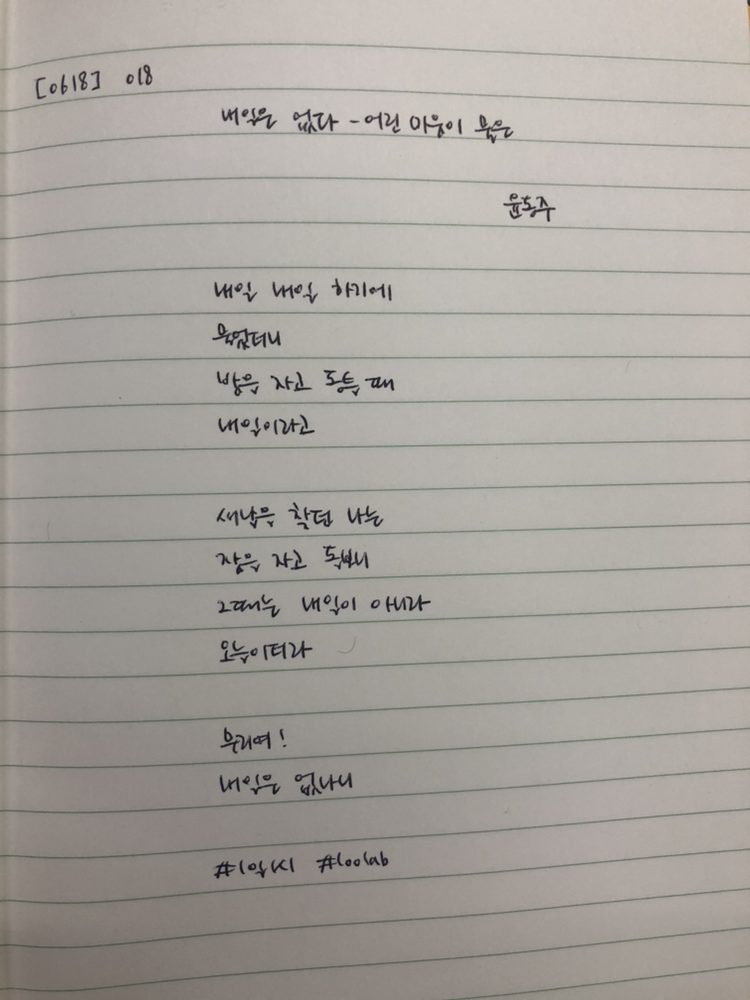 [0618] 018
내일은 없다 - 어린 마음이 물은
윤동주
내일 내일 하기에
물었더니
밤을 자고 동틀 때
내일이라고
새날을 찾던 나는
잠을 자고 돌보니
그때는 내일이 아니라
오늘이더라
무리여!
내일은 없나니
#1일1시 #100lab